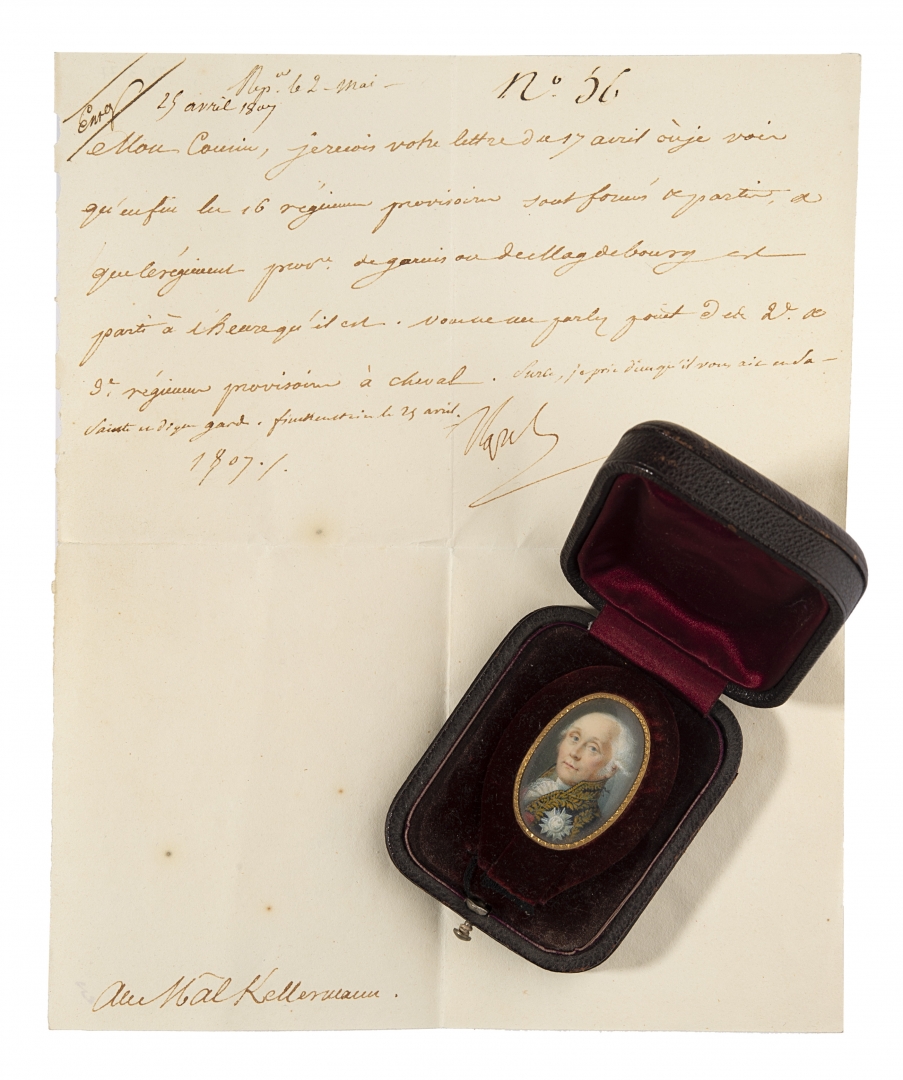 Enreg
Rep.on le 2 mai
25 avril 1807
No. 56
Mon Cousin, je reçois votre lettre du 17 avril où je vois
qu'enfin les 16 régimens provisoires sont formés & partis, &
que le régiment prov.re de garnison de Magdebourg est
parti à l'heure qu'il est. vous ne me parlez point des 2e. &
3e. régimens provisoires à cheval. Sur ce, je prie dieu qu'il vous ait en sa
sainte et digne garde. finckenstein le 25 avril.
1807./.
Napol
Au Mal Kellermann.